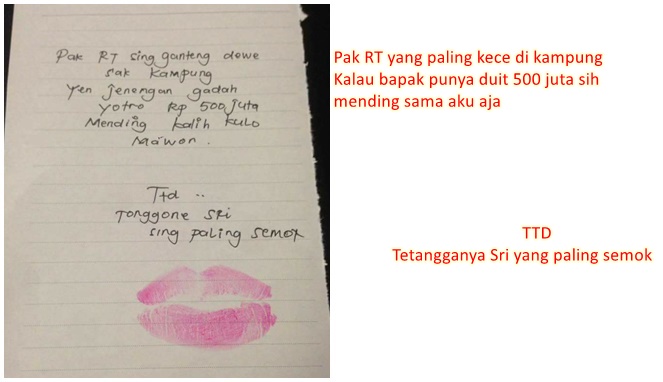 Pak RT sing ganteng dewe
sak kampung
yen jenengan gadah
yotro Rp 500 juta
Mending kalih kulo
mawon.
Ttd ..
Tonggone Sri
sing paling semox
Pak RT yang paling kece di kampung
Kalau bapak punya duit 500 juta sih
mending sama aku aja
TTD
Tetangganya Sri yang paling semok